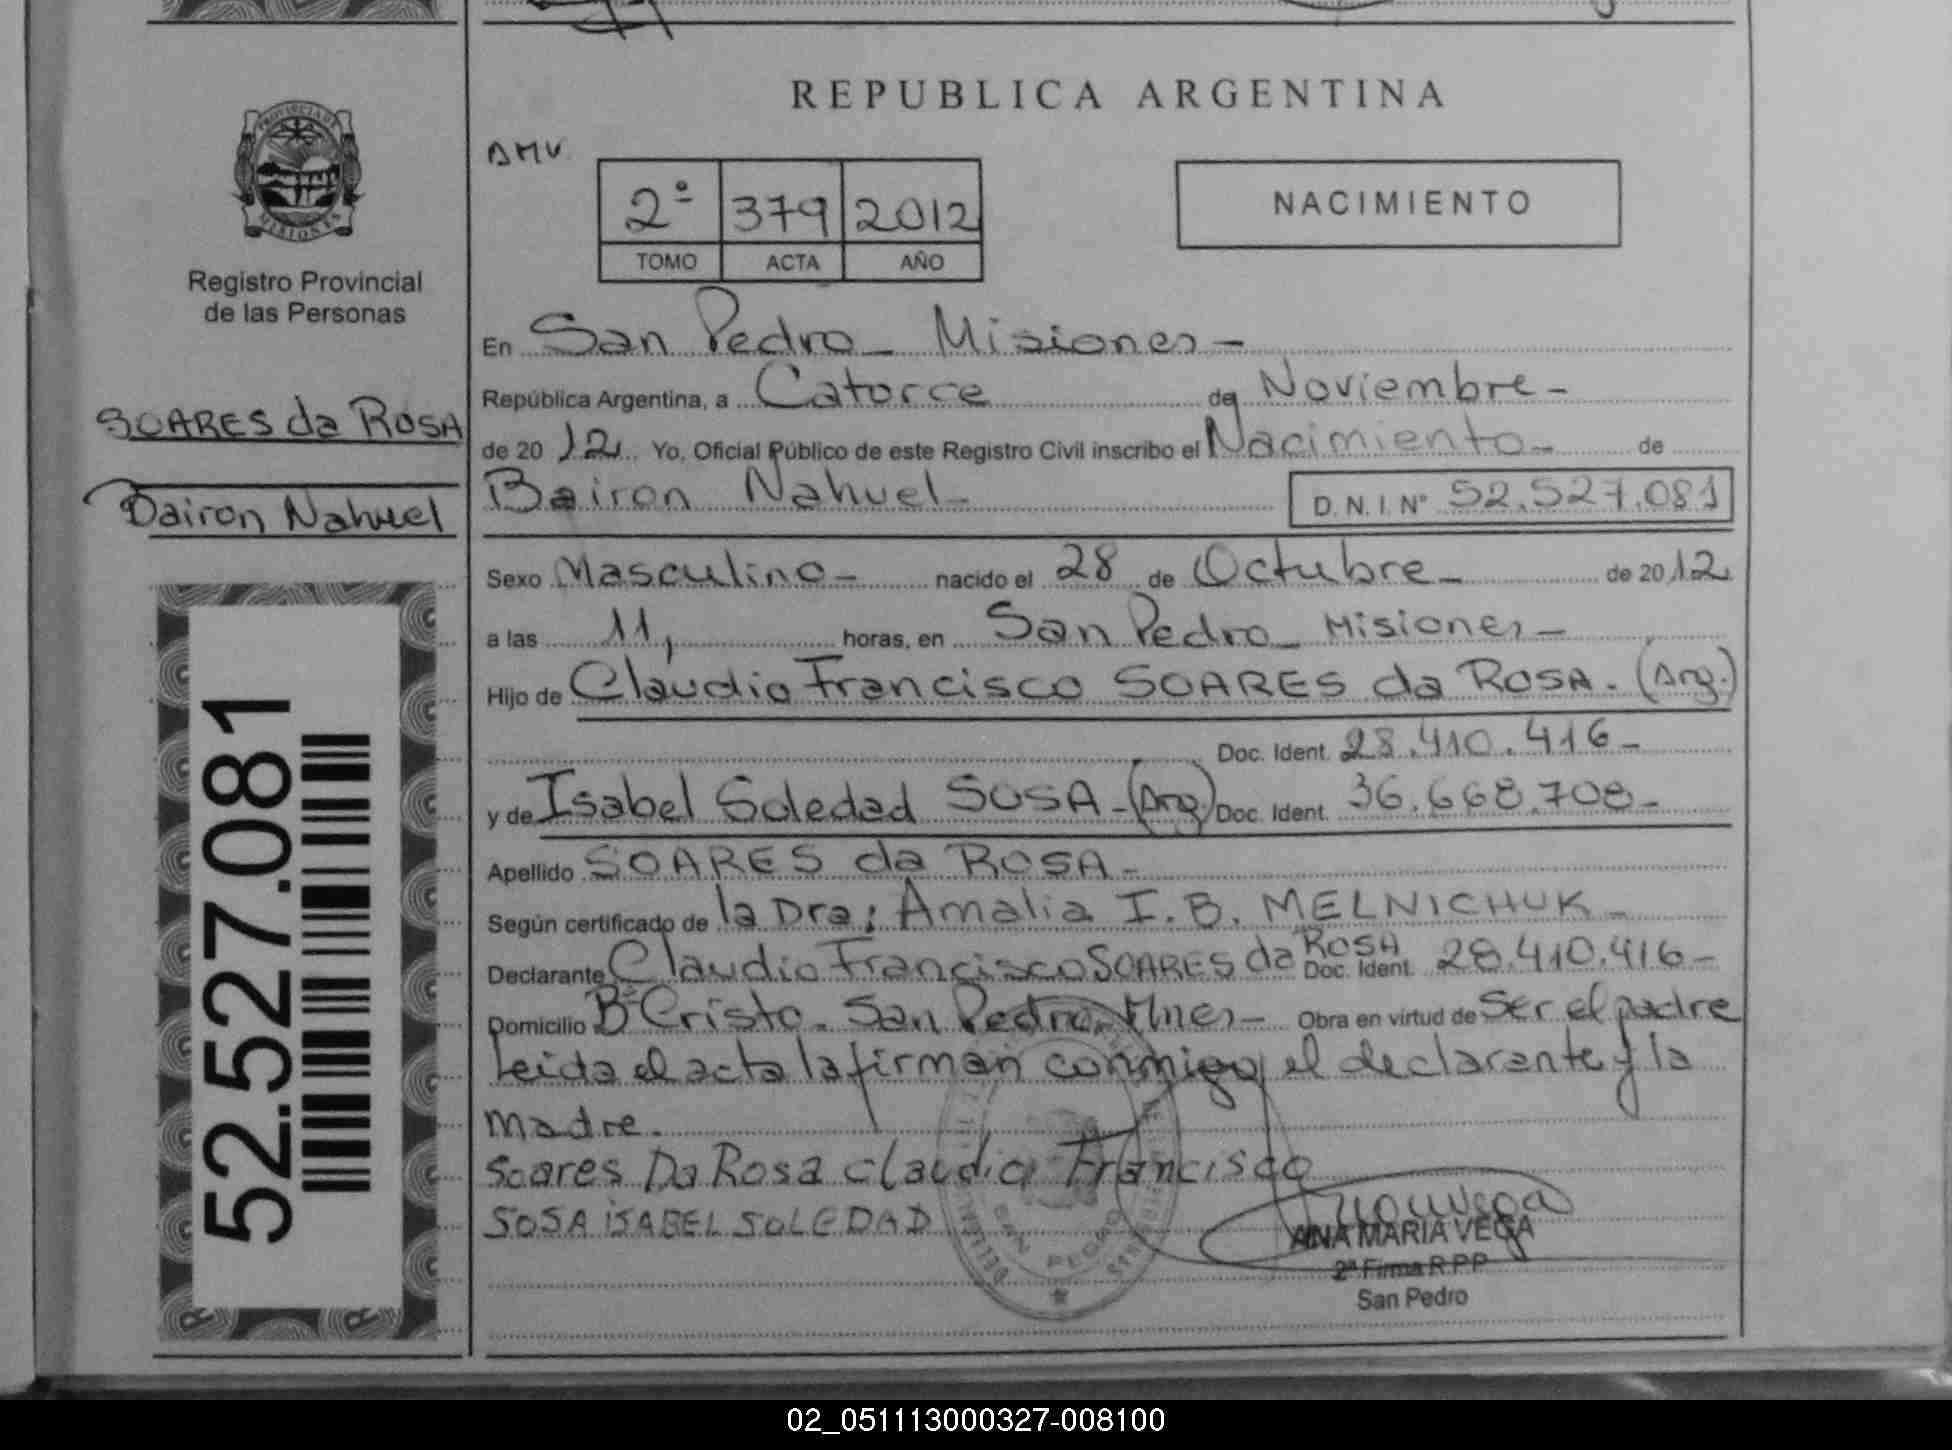 REPUBLICA ARGENTINA
PROVINCIA DE
MISIONES
Registro Provincial
de las Personas
SOARES da ROSA
Bairon Nahuel
52.527.081
AMV
2º 379 2012
TOMO ACTA AÑO
NACIMIENTO
En San Pedro - Misiones -
República Argentina, a Catorce de Noviembre -
de 20 12 Yo, Oficial Público de este Registro Civil inscribo el Nacimiento - de
Bairon Nahuel - D. N. I. Nº 52.527.081
Sexo Masculino - nacido el 28 de Octubre - de 20 12
a las 11, horas, en San Pedro - Misiones -
Hijo de Claudio Francisco SOARES da ROSA. (Arg.)
Doc. Ident. 28.410.416 -
y de Isabel Soledad SOSA - (Arg.) Doc. Ident. 36.668.708 -
Apellido SOARES da ROSA -
Según certificado de la Dra; Amalia I. B. MELNICHUK -
Declarante Claudio Francisco SOARES da ROSA Doc. Ident. 28.410.416 -
Domicilio Bº Cristo - San Pedro, Mnes - Obra en virtud de ser el padre
Leida el acta la firman conmigo el declarante y la
madre.
Soares Da Rosa Claudio Francisco
SOSA ISABEL SOLEDAD
SAN PEDRO
ANA MARIA VEGA
2ª Firma R.P.P
San Pedro
02_051113000327-008100